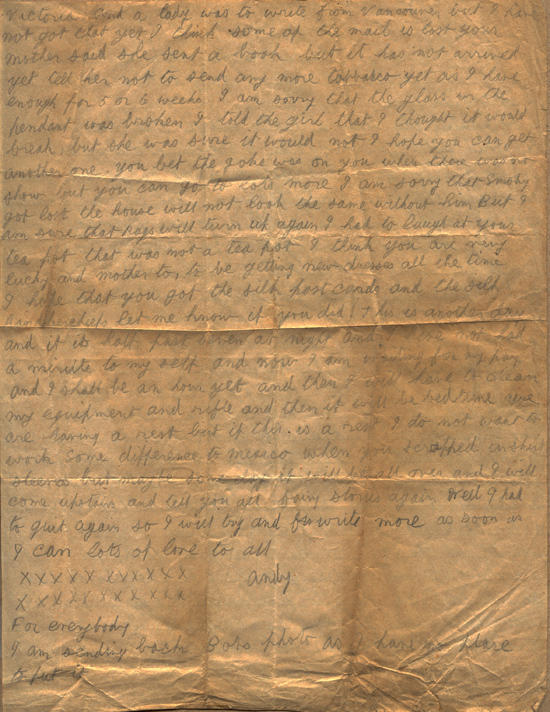 Victoria and a lady was to write from Vancouver but I have
not got that yet I think some of the mail is lost your
mother said she sent a book but it has not arrived
yet tell her not to send any more tobbacco yet as I have
enough for 5 or 6 weeks I am sorry that the glass in the
pendant was broken I told the girl that I thought it would
break but she was sure it would not I hope you can get
another one you bet the joke was on you when there was no
show but you can go to lots more I am sorry that Smoky
got lost the house will not look the same without him But I
am sure that rags will turn up again I had to laugh at your
tea pot that was not a tea pot I think you are very
lucky and mother to, to be getting new dresses all the time
I hope that you got the silk post cards and the silk
handkerchiefs let me know if you did! This is another day
and it is half past seven at night and I have not had
a minute to my self and now I am waiting for my pay
and I shall be an hour yet and then I will have to clean
my equipment and rifle and then it will be bedtime we
are having a rest but if this is a rest I do not want to
work Some difference to mexico when you scrapped in shirt
sleeves but maybe some day it will be all over and I will
come upstairs and tell you all funny stories again Well I had
to quit again so I will try and write more as soon as
I can lots of love to all
xxxxx xxxxxx Andy
x xxxxxxxxxx
For everybody
I am sending back Bobs photo as I have no place
to put it